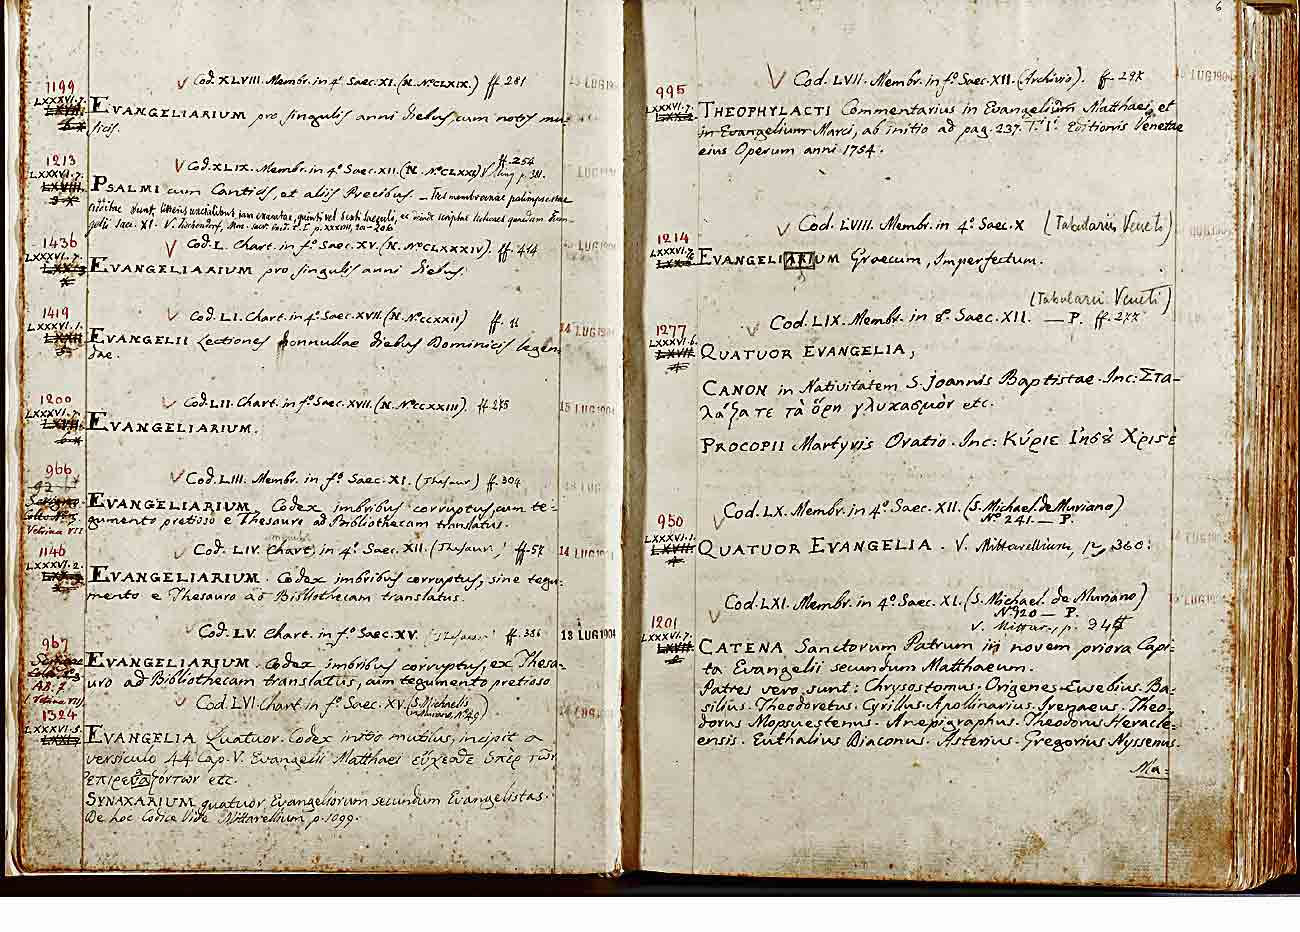 1199
LXXXVI.7.
Cod. XLVIII. Membr. in 4º Saec. XI. (N. Nº CLXIX.) ff. 281
EVANGELIARIUM pro singulis anni diebus, cum notis mu-
sicis.
1213
LXXXVI.7.
Cod. XLIX. Membr. in 4º. Saec. XII. (N. Nº CLXXX) ff. 254
PSALMI cum Canticis, et aliis Precibus. — Tres membranae palimpsestae
1436
LXXXVI.7.
Cod. L. Chart. in fº. Saec. XV. (N. Nº CLXXXIV). ff. 414
EVANGELIARIUM pro singulis anni diebus.
1419
LXXXVI.1.
Cod. LI. Chart. in 4º. Saec. XVII. (N. Nº CCXXII) ff. 11
14 LUG 1904
EVANGELII Lectiones nonnullae diebus Dominicis legen-
dae.
1200
LXXXVI.7.
Cod. LII. Chart. in fº. Saec. XVII. (N. Nº CCXXIII). ff. 278
15 LUG 1904
EVANGELIARIUM.
966
Cod. LIII. Membr. in fº. Saec. XI. (Thesaur.) ff. 304
Vetrina VII
EVANGELIARIUM. Codex imbribus corruptus, cum te-
gumento pretioso e Thesauro ad Bibliothecam translatus.
1146
LXXXVI.2.
Cod. LIV. Chart. in 4º. Saec. XII. (Thesaur.) ff. 57
14 LUG 1904
EVANGELIARIUM. Codex imbribus corruptus, sine tegu-
mento e Thesauro ad Bibliothecam translatus.
967
Cod. LV. Chart. in fº. Saec. XV. (Thesaur.) ff. 386
13 LUG 1904
EVANGELIARIUM. Codex imbribus corruptus, ex Thesa-
uro ad Bibliothecam translatus, cum tegumento pretioso
(Vetrina VII)
1324
LXXXVI.5.
Cod. LVI. Chart. in fº. Saec. XV. (S. Michaelis
de Muriano, Nº 49)
EVANGELIA Quatuor. Codex initio mutilus, incipit a
versiculo 44 Cap. V. Evangelii Matthaei εὔχεσθε ὑπὲρ τῶν
ἐπηρεαζόντων etc.
SYNAXARIUM quatuor Evangeliorum secundum Evangelistas.
De hoc Codice Vide Mittarellium p. 1099.
6
995
LXXXVI.7.
Cod. LVII. Membr. in fº. Saec. XII. (Archivio). ff. 297
THEOPHYLACTI Commentarius in Evangelium Matthaei, et
in Evangelium Marci, ab initio ad pag. 237. T. I. Editionis Venetae
eius Operum anni 1754.
1214
LXXXVI.7.
Cod. LVIII. Membr. in 4º. Saec. X (Tabularii Veneti)
EVANGELIARIUM Graecum, Imperfectum.
(Tabularii Veneti)
1277
LXXXVI.6.
Cod. LIX. Membr. in 8º. Saec. XII. — P. ff. 277
QUATUOR EVANGELIA,
CANON in Nativitatem S. Joannis Baptistae. Inc: Στα-
λάξατε τὰ ὄρη γλυκασμὸν etc.
PROCOPII Martyris Oratio. Inc: Κύριε Ἰησȣ̂ Χριστὲ
950
LXXXVI.1.
Cod. LX. Membr. in 4º. Saec. XII. (S. Michael. de Muriano)
Nº 241. — P.
QUATUOR EVANGELIA. V. Mittarellium, p. 360.
1201
LXXXVI.7.
Cod. LXI. Membr. in 4º. Saec. XI. (S. Michael. de Muriano)
Nº 920 — P.
V. Mittar., p. 945
CATENA Sanctorum Patrum in novem priora Capi-
ta Evangelii secundum Matthaeum.
Patres vero sunt: Chrysostomus. Origenes. Eusebius. Ba-
silius. Theodoretus. Cyrillus. Apollinarius. Irenaeus. Theo-
dorus Mopsuestenus. Anepigraphus. Theodorus Heracle-
ensis. Euthalius Diaconus. Asterius. Gregorius Nyssenus.
Ma-